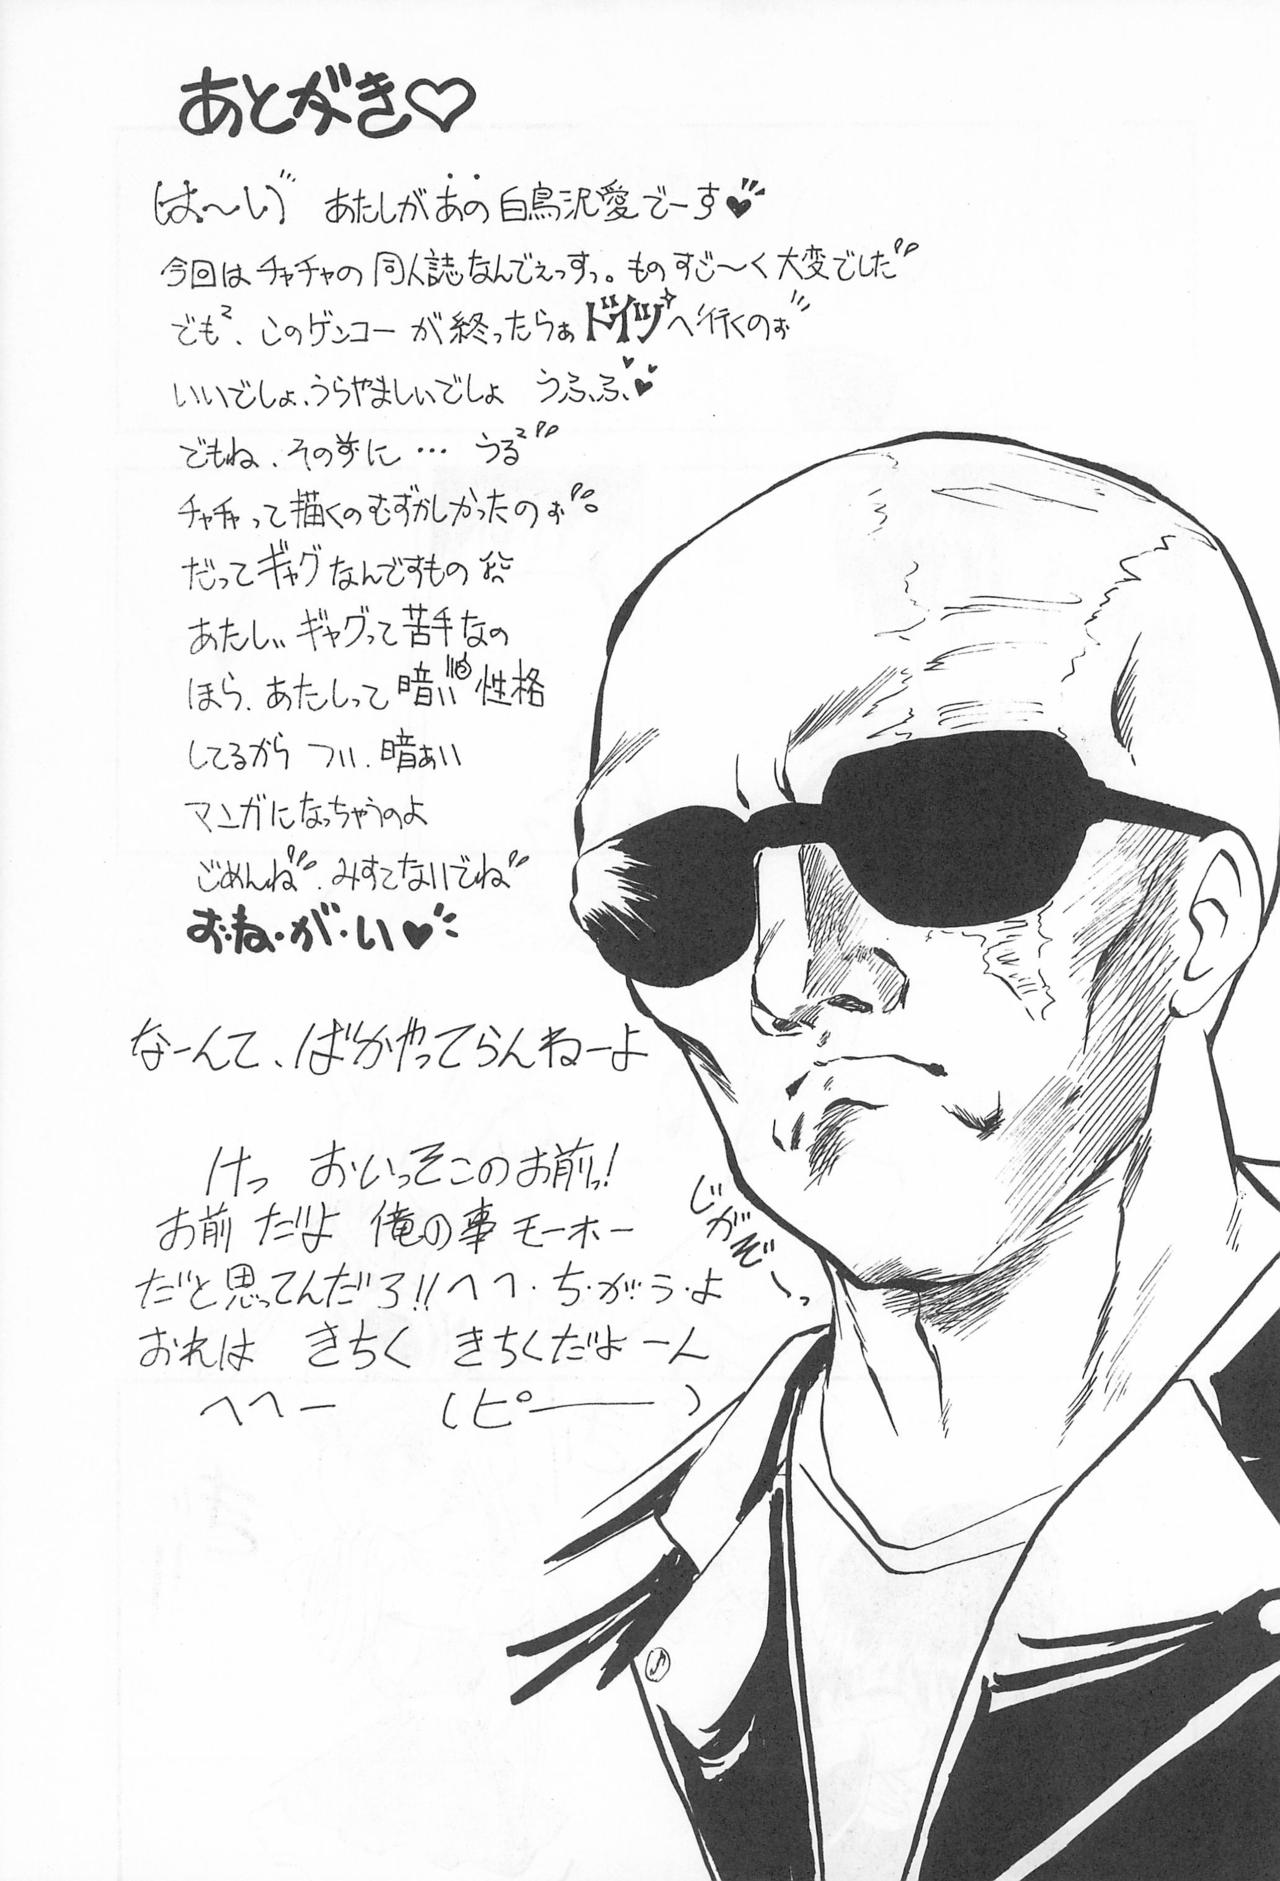 あとがき♡
はーい あたしがあの白鳥沢愛でーす♥
今回はチャチャの同人誌なんでぇっすっ。ものすご〜く大変でした
でも²、このゲンコーが終ったらぁドイツへ行くのぉ
いいでしょ、うらやましぃでしょ うふ、ふ、♥
でもね、その前に… うる²
チャチャって描くのむずかしかったのぉ。
だってギャグなんですもの
あたしぃギャグって苦手なの
ほら、あたしって暗ぃ性格
してるから つい、暗ぁい
マンガになっちゃうのよ
ごめんね、みすてないでね
お・ね・が・い♥
なーんて、ばかやってらんねーよ
けっ おいっそこのお前っ!
お前だよ 俺の事モーホー
だと思ってんだろ!!へへ・ち・が・う・よ
おれは きちく きちくだよーん
へへー (ピ――)
じがぞーっ